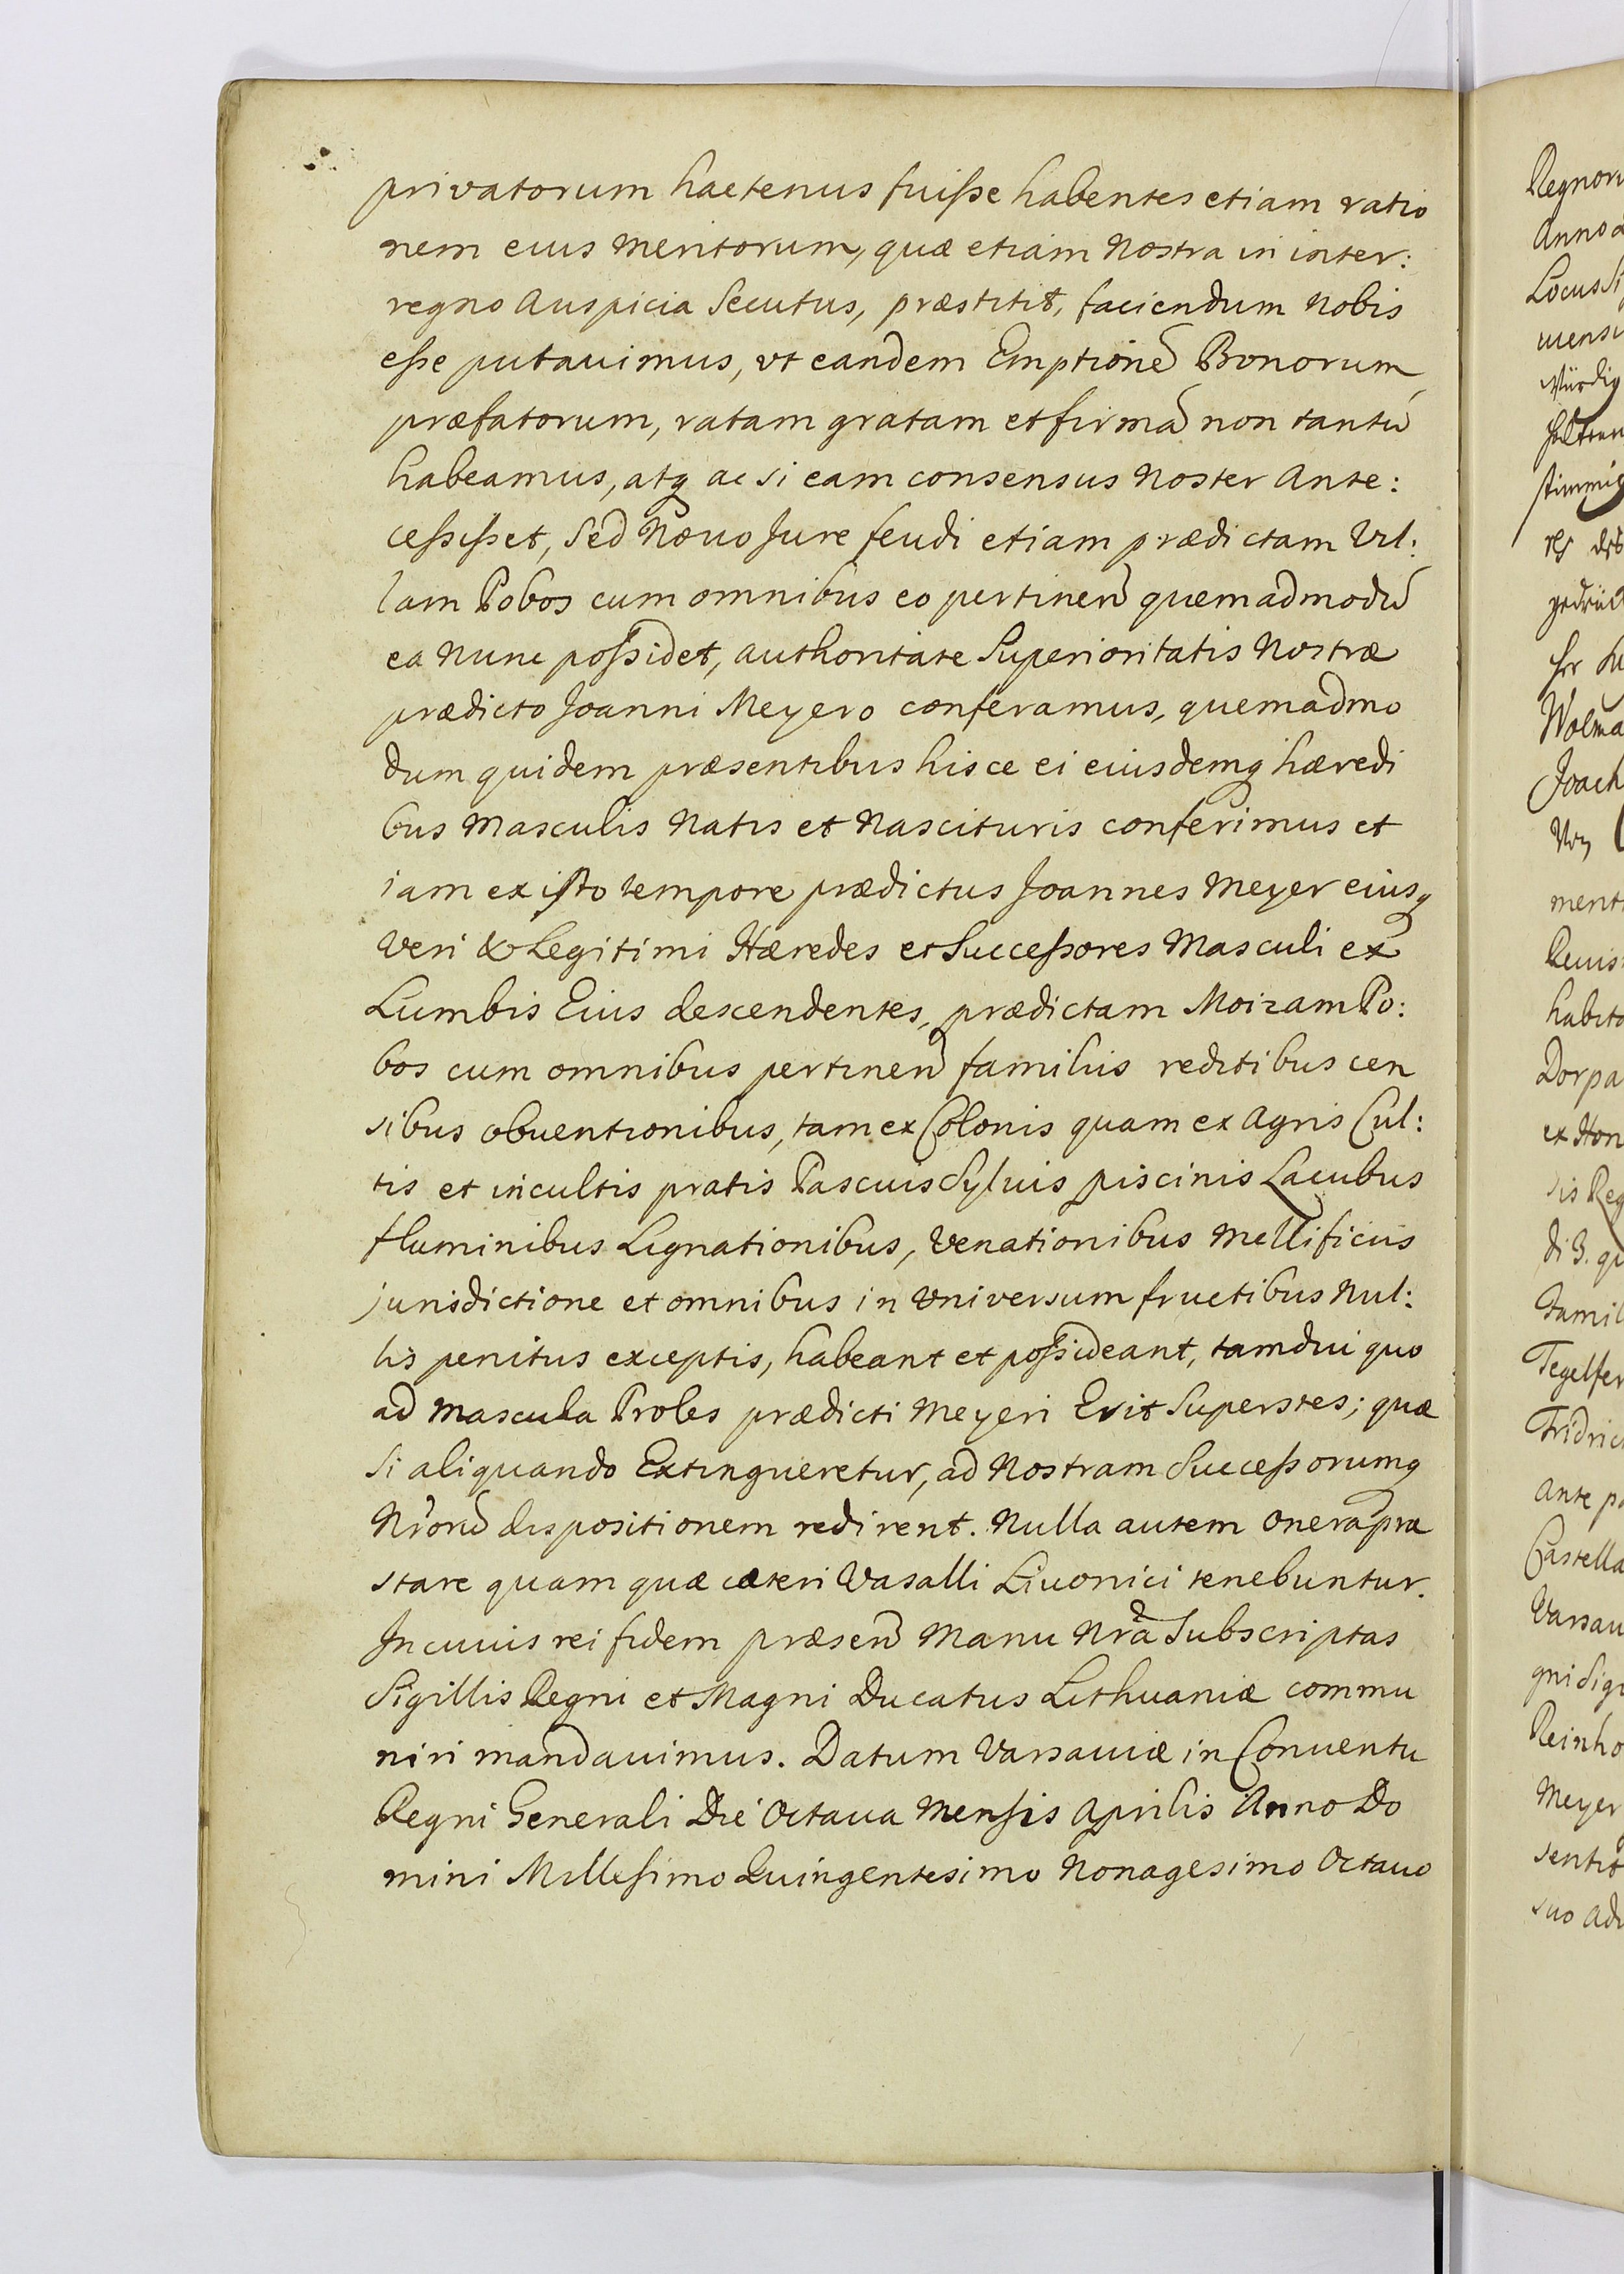 privatorum hactenus fuisse habentes etiam ratio
nem eius meritorum, quæ etiam Nostra in inter:
regno Auspicia Secutus, præstitit, faciendum Nobis
esse putauimus, vt eandem Emptionē Bonorum
præfatorum, ratam gratam et firmā non tantū
habeamus, atq ac si eam consensus Noster Ante:
cessisset, Sed Nouo Jure feudi etiam prædictam Vil:
lam Pobos cum omnibus eo pertinen quemadmodū
ea Nunc possidet, authoritate Superioritatis Nostræ
prædicto Joanni Meyero conferamus, quemadmo
dum quidem præsentibus hisce ei eiusdemq hæredi
bus Masculis Natis et Nascituris conferimus et
iam ex isto tempore prædictus Joannes Meyer eiusq
Veri & Legitimi Hæredes et Successores Masculi ex
Lumbis Eius descendentes, prædictam Moizam Po:
bos cum omnibus pertinen familiis reditibus cen
sibus obuentionibus, tam ex Colonis quam ex Agris Cul:
tis et incultis pratis Pascuis Syluis piscinis Lacubus
fluminibus Lignationibus, Venationibus Mellificiis
jurisdictione et omnibus in Vniversum fructibus Nul:
lis penitus exceptis, habeant et possideant, tamdiu quo
ad Mascula Proles prædicti Meyeri Erit Superstes; quæ
Si aliquando Extingueretur, ad Nostram Successorumq
Nrorū dispositionem redirent. Nulla autem Onera præ
stare quam quæ cæteri Vasalli Liuonici tenebuntur.
In cuius rei fidem præsen Manu Nra Subscriptas
Sigillis Regni et Magni Ducatus Lithuaniæ commu
niri mandauimus. Datum Varsauiæ in Conuentu
Regni Generali Die Octaua Mensis Aprilis Anno Do
mini Millesimo Quingentesimo Nonagesimo Octauo